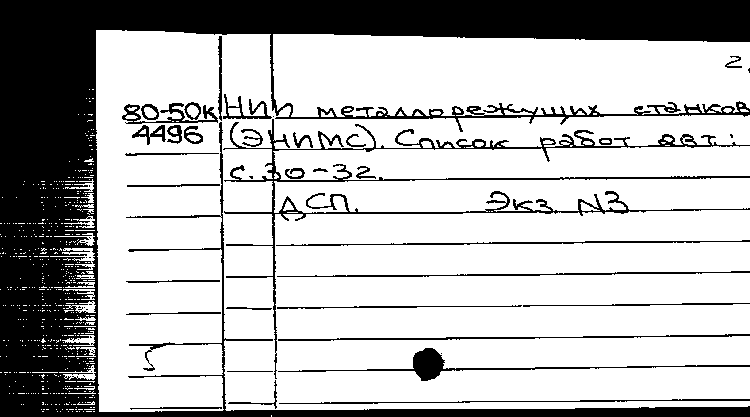 2.
80-50к НИИ металлорежущих станков
4496 (ЭНИМС). Список работ авт:
с. 30-32.
ДСП. Экз N3
5